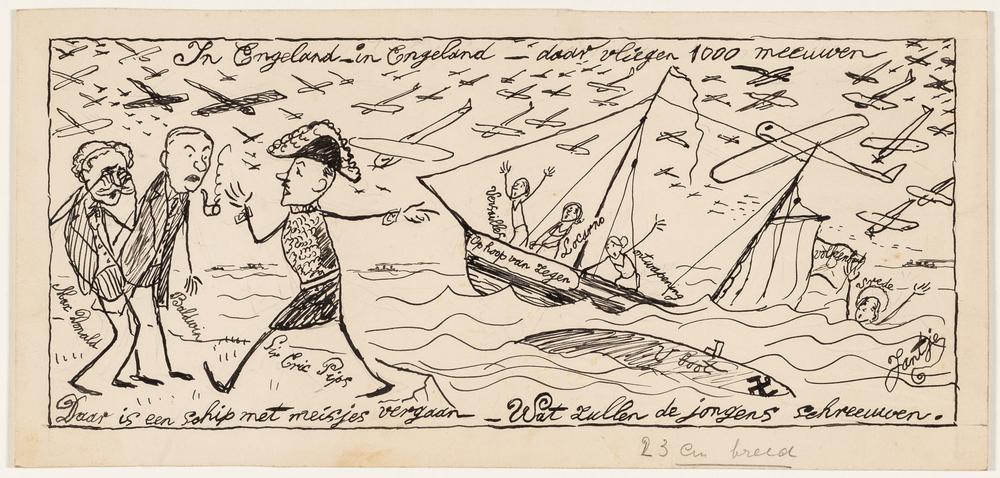 In Engeland – in Engeland – daar vliegen 1000 meeuwen
Versailles
Locarno
ontwapening
Op hoop van zegen
volkenbond
vrede
Mac Donald
Baldwin
Sir Eric Pips
U boot
Jantje
Daar is een schip met meisjes vergaan – Wat zullen de jongens schreeuwen.
23 cm breed